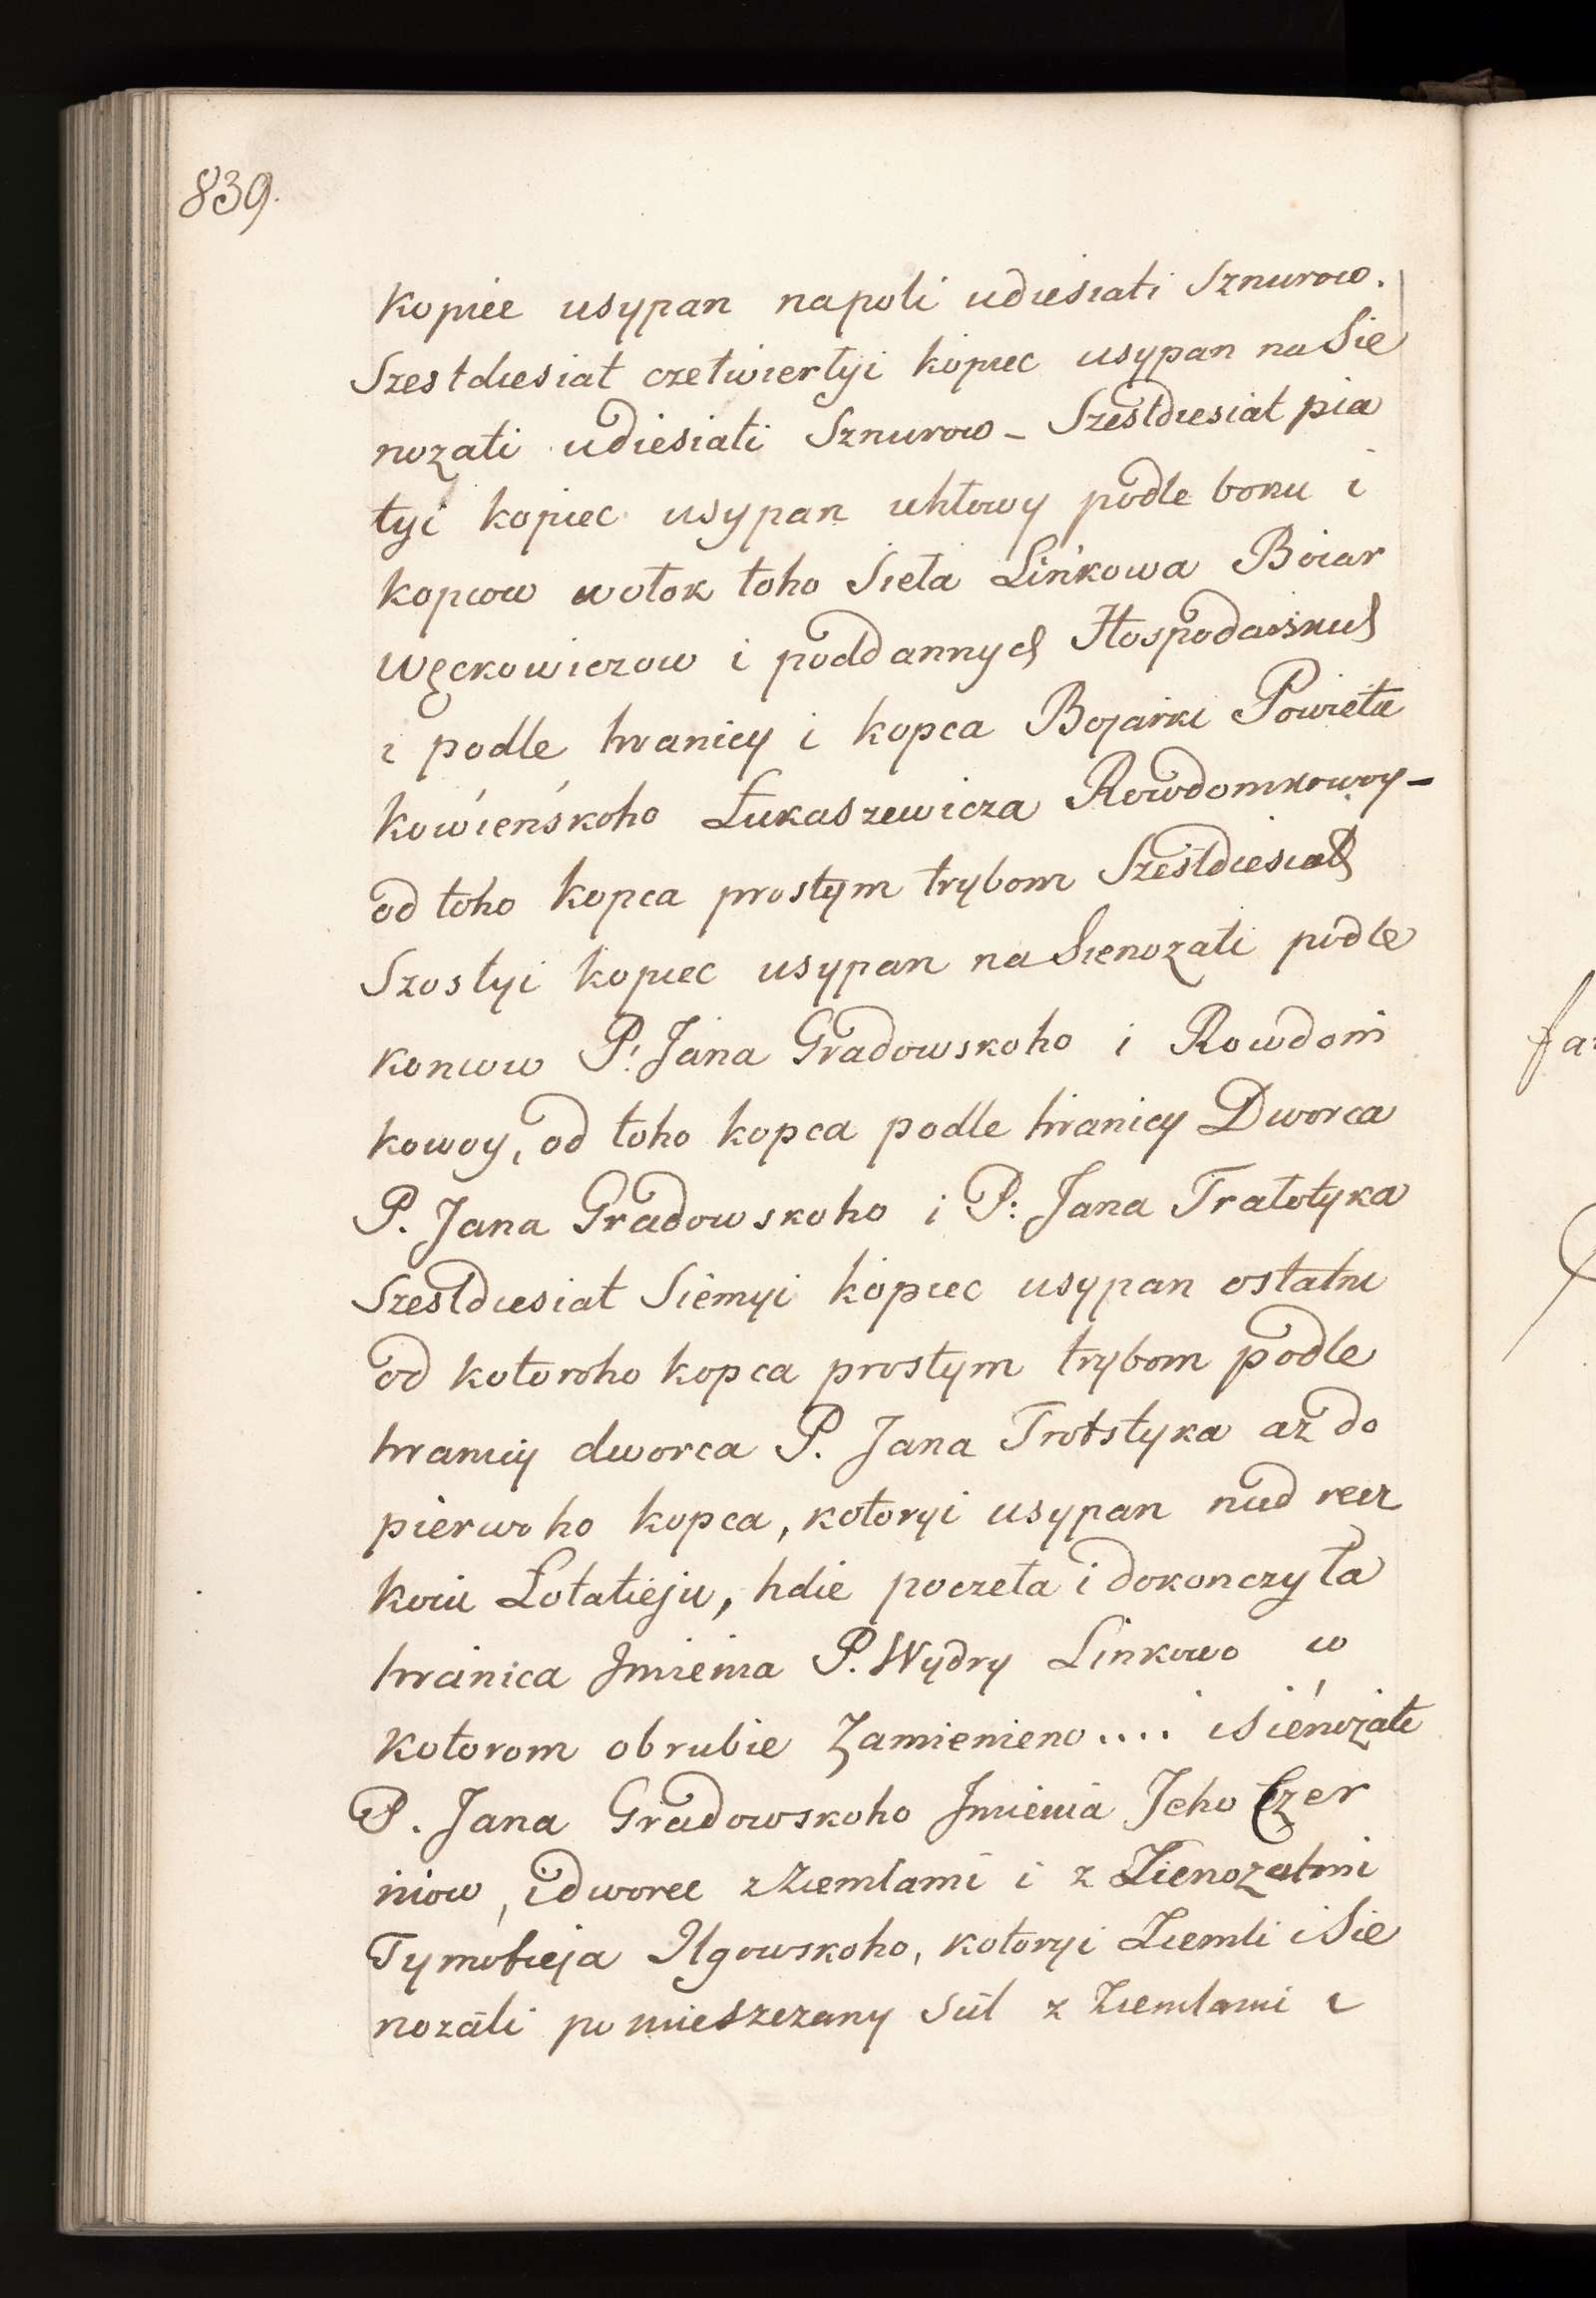 839.
kopiec usypan napoli udiesiati Sznurow.
Szestdiesiat czetwiertyi kopiec usypan na Sie
nozati udiesiati Sznurow - Szestdiesiat pia
tyi kopiec usypan uhłowy podle boru i
kopcow wołok toho Sieła Linkowa Boiar
Węckowiczow i poddannych Hospodarskich
i podle hranicy i kopca Bojarki Powietu
kowieńskoho Łukaszewicza Rowdomkowoy -
od toho kopca prostym trybom Szestdiesiat
Szostyi kopiec usypan na Sienozati podle
koncow P: Jana Gradowskoho i Rowdom
kowoy, od toho kopca podle hranicy Dworca
P. Jana Gradowskoho i P: Jana Tratotyka
Szestdiesiat Siemyi kopiec usypan ostatni
od kotoroho kopca prostym trybom podle
hranicy dworca P. Jana Trotstyka aż do
pierwoho kopca, kotoryi usypan nad recz
koiu Łotatieju, hdie poczeta i dokonczyła
hranica Jmienia P. Wydry Linkowo w
kotorom obrubie Zamienieno .... i Sienożati
P. Jana Gradowskoho Jmienia Jeho Czer
niow, i dworec z Ziemlami i z Zienozatmi
Tymofieja Ilgowskoho, kotoryi Ziemli i Sie
nozati pomieszczany sut z Ziemlami i
fa